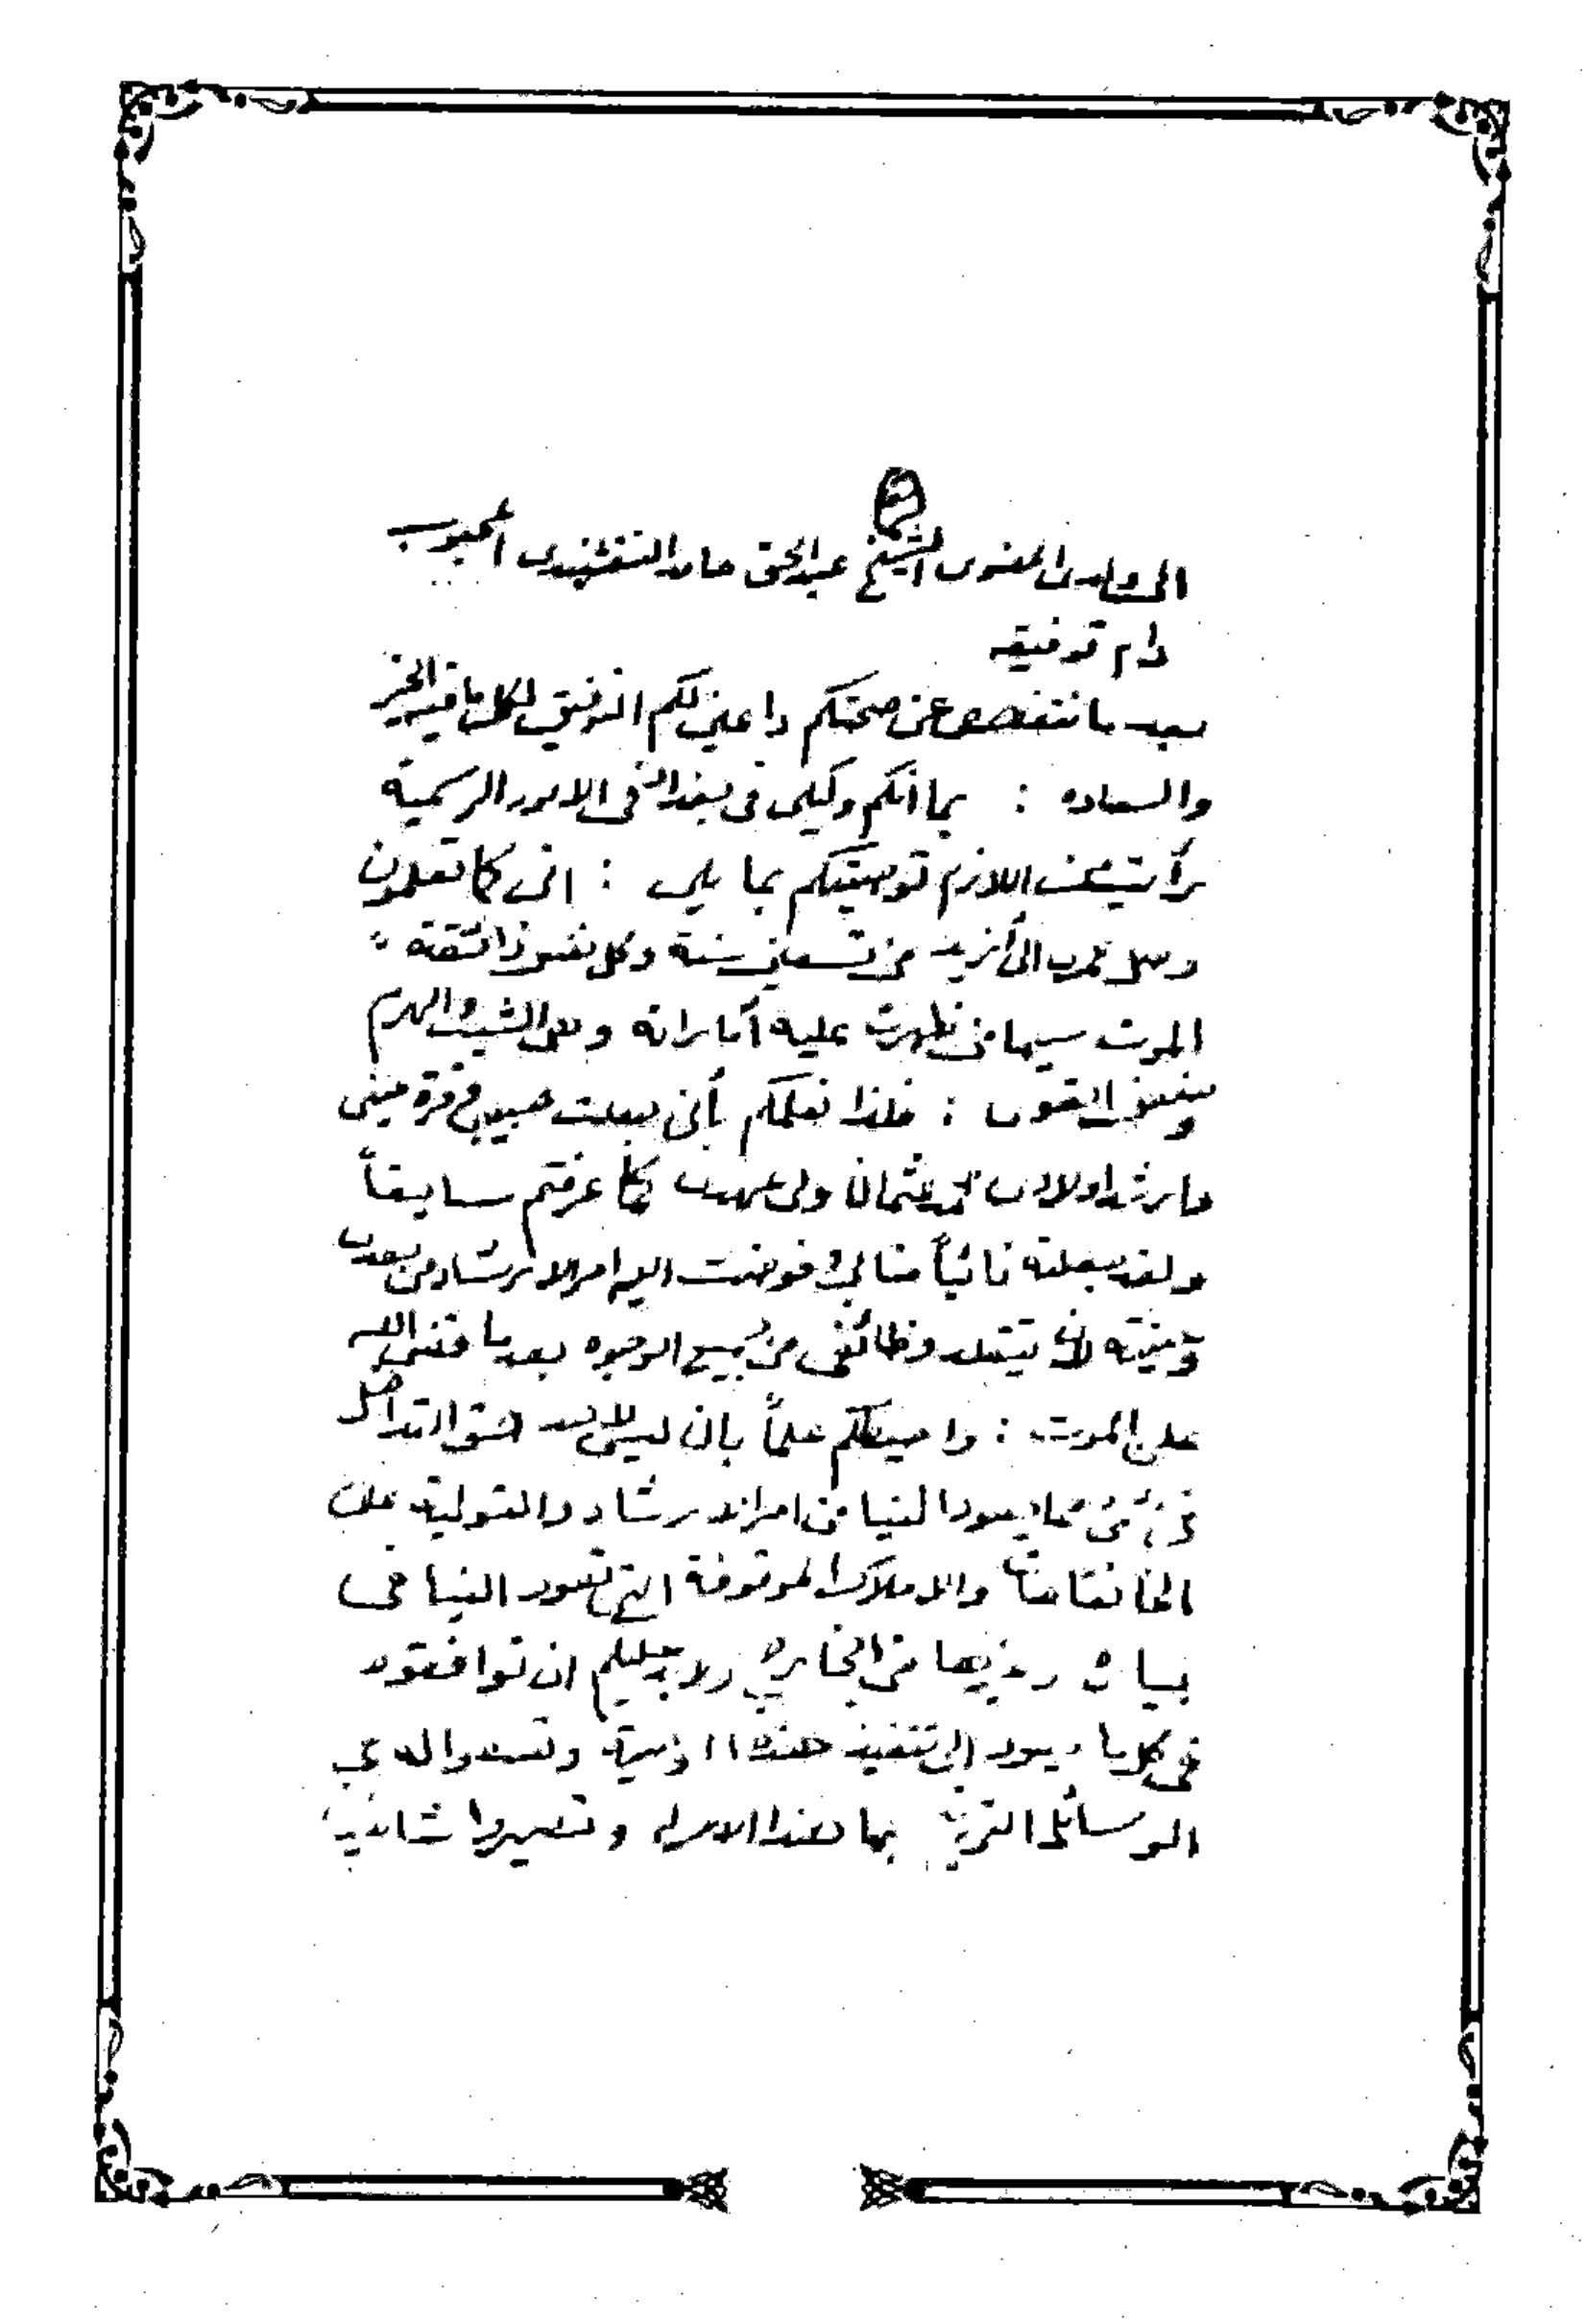 الى ولدى المعنوى الشيخ عبدالحق حامد النقشبندى المحبوب
دام توفيقه
بعد ما نتفحص عن صحتكم داعين لكم التوفيق لكل ما فيه الخير
والسعاده : بما انكم وكيلى فى بغداد فى الامور الرسمية
رأيت من اللازم توصيتكم بما يلى : انى كما تعلمون
وصل عمرى الى أزيد من تسعين سنة وكل نفس ذائقة
الموت سيما من ظهرت عليه أماراته وهى الشيب والهرم
وضعف القوى : فلذا نعلمكم بأنى جعلت حبيبى وقرة عينى
وارشد اولادى محمد عثمان ولى عهدى كما عرفتم سابقاً
ولقد جعلته نائباً منابى وفوضت اليه امر الارشاد من بعدى
وعينته لأن يتقلد وظائفى من جميع الوجوه بعد ما قضى الله
على الموت : واحيطكم علماً بان ليس لأحد حق التداخل
فى شئ مما يعود الينا من امر الارشاد والتولية على
الخانقاهات والاملاك الموقوفة التى تعود الينا فى
بياره وغيرها من ولاجله عليكم ان توافقوه
فى كل ما يعود الى تنفيذ هذه الوصية وتعدوا له جميع
الوسائل بهذا الامر وتصيروا